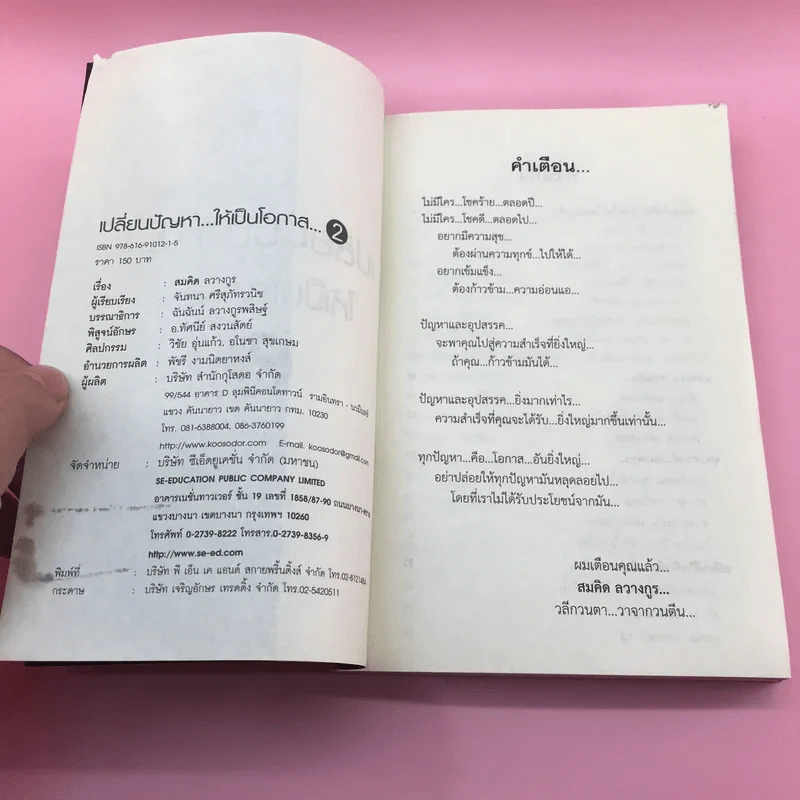 เปลี่ยนปัญหา...ให้เป็นโอกาส... 2
ISBN 978-616-91012-1-5
ราคา 150 บาท
เรื่อง : สมคิด ลวางกูร
ผู้เรียบเรียง : จันทนา ศรีสุภัทรวนิช
บรรณาธิการ : ฉันฉันน์ ลวางกูรพสิษฐ์
พิสูจน์อักษร : อ.ทัศนีย์ สงวนสัตย์
ศิลปกรรม : วิชัย อุ่นแก้ว, อโนชา สุขเกษม
อำนวยการผลิต : พัชรี งามนิตยาหงส์
ผู้ผลิต : บริษัท สำนักกุโสดอ จำกัด
99/544 อาคาร D ลุมพินีคอนโดทาวน์ รามอินทรา - นวมินทร์
แขวง คันนายาว เขต คันนายาว กทม. 10230
โทร. 081-6388004, 086-3760199
http://www.koosodor.com E-mail. koosodor@gmail.com
จัดจำหน่าย : บริษัท ซีเอ็ดยูเคชั่น จำกัด (มหาชน)
SE-EDUCATION PUBLIC COMPANY LIMITED
อาคารเนชั่นทาวเวอร์ ชั้น 19 เลขที่ 1858/87-90 ถนนบางนา-ตราด
แขวงบางนา เขตบางนา กรุงเทพฯ 10260
โทรศัพท์ 0-2739-8222 โทรสาร.0-2739-8356-9
http://www.se-ed.com
พิมพ์ที่ : บริษัท พี เอ็น เค แอนด์ สกายพริ้นติ้งส์ จำกัด
กระดาษ : บริษัท เจริญอักษร เทรดดิ้ง จำกัด โทร.02-5420511
คำเตือน...
ไม่มีใคร...โชคร้าย...ตลอดปี...
ไม่มีใคร...โชคดี...ตลอดไป...
อยากมีความสุข...
ต้องผ่านความทุกข์...ไปให้ได้...
อยากเข้มแข็ง...
ต้องก้าวข้าม...ความอ่อนแอ...
ปัญหาและอุปสรรค...
จะพาคุณไปสู่ความสำเร็จที่ยิ่งใหญ่...
ถ้าคุณ...ก้าวข้ามมันได้...
ปัญหาและอุปสรรค...ยิ่งมากเท่าไร...
ความสำเร็จที่คุณจะได้รับ...ยิ่งใหญ่มากขึ้นเท่านั้น...
ทุกปัญหา...คือ...โอกาส...อันยิ่งใหญ่...
อย่าปล่อยให้ทุกปัญหามันหลุดลอยไป...
โดยที่เราไม่ได้รับประโยชน์จากมัน...
ผมเตือนคุณแล้ว...
สมคิด ลวางกูร...
วลีกวนตา...วาจากวนตีน...